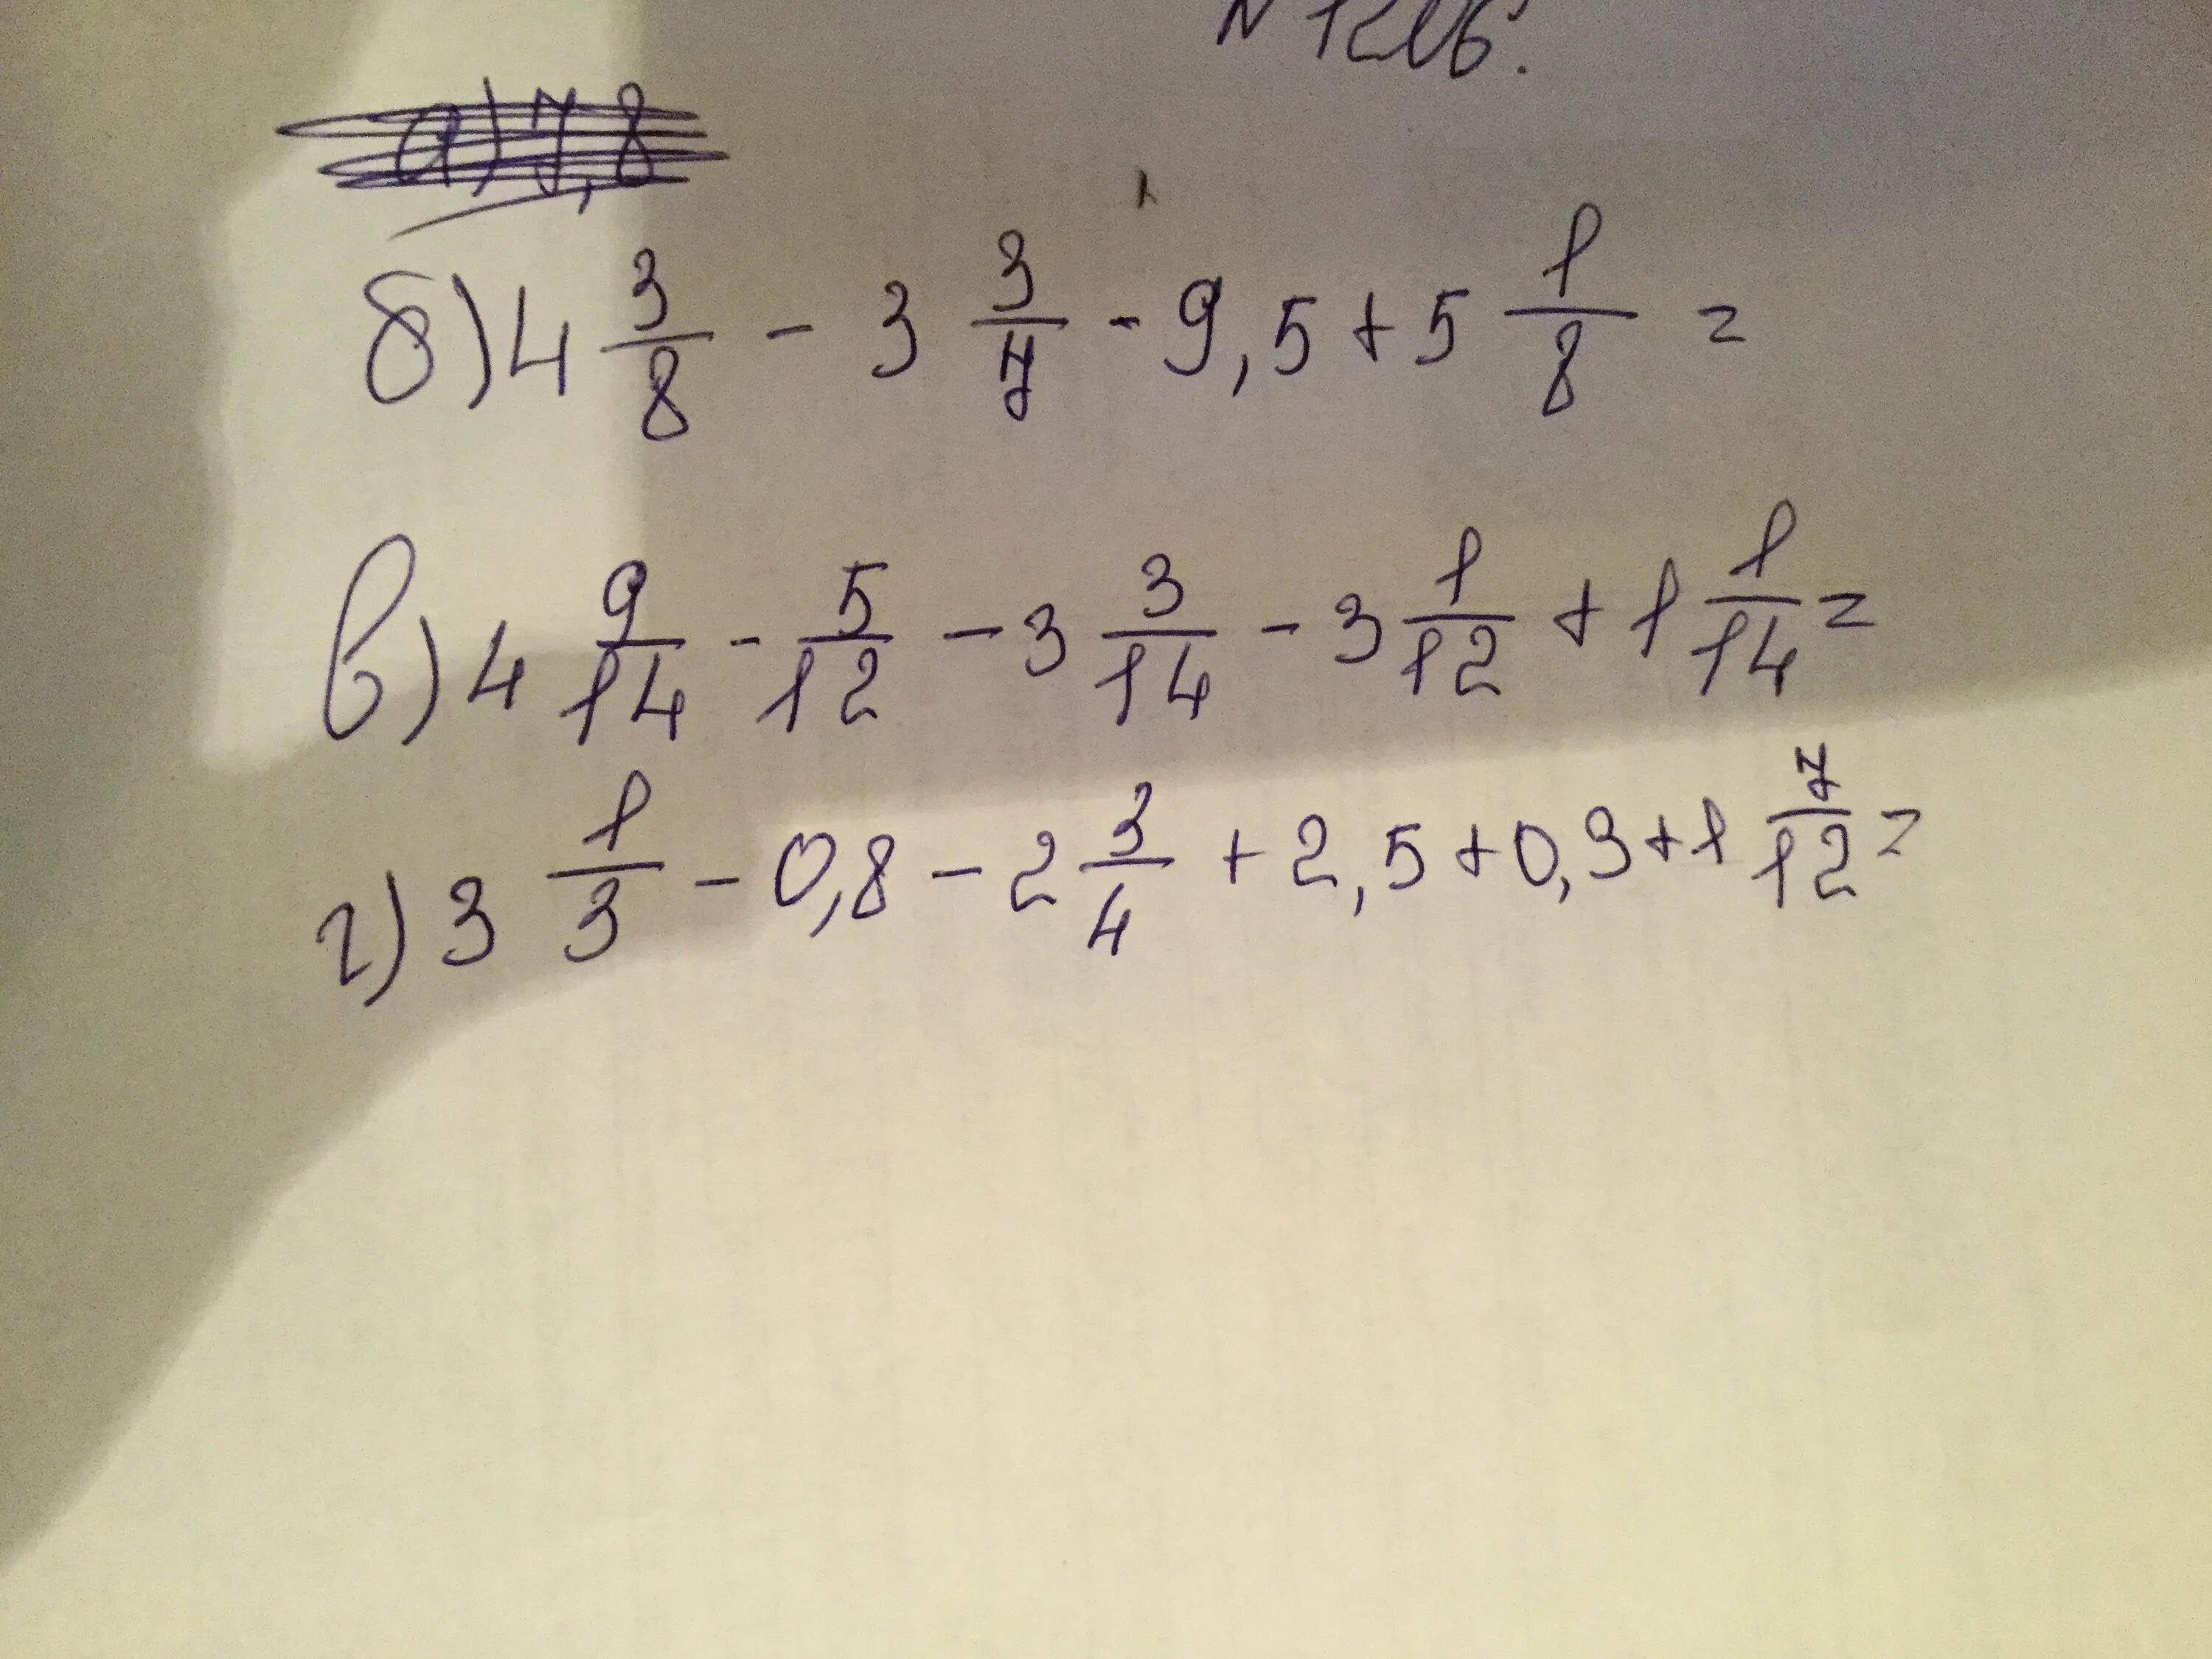 а) 7,8
б) 4 3/8 - 3 3/7 - 9,5 + 5 1/8 =
в) 4 9/14 - 5/12 - 3 3/14 - 3 1/12 + 1 1/14 =
г) 3 1/3 - 0,8 - 2 3/4 + 2,5 + 0,3 + 1 7/12 =